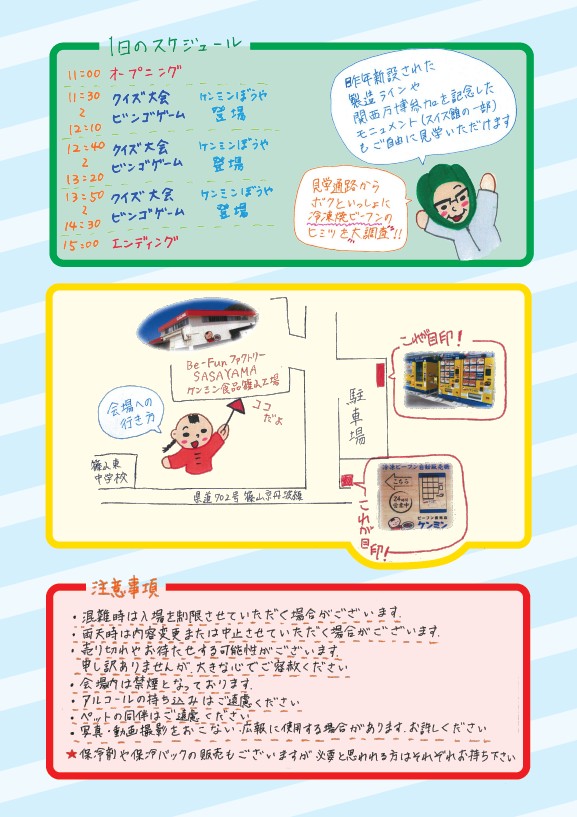 1日のスケジュール
11:00 オープニング
11:30
クイズ大会 ケンミンぼうや
ビンゴゲーム 登場
12:10
12:40
クイズ大会 ケンミンぼうや
ビンゴゲーム 登場
13:20
13:50
クイズ大会 ケンミンぼうや
ビンゴゲーム 登場
14:30
15:00 エンディング
昨年新設された
製造ラインや
関西万博参加を記念した
モニュメント(スイス館の一部)
もご自由に見学いただけます
見学通路から
ボクといっしょに
冷凍焼ビーフンの
ヒミツを大調査!!
Be-Funファクトリー
SASAYAMA
ケンミン食品篠山工場
会場への
行き方
ココ
だよ
駐車場
これが目印!
篠山東
中学校
県道702号篠山京丹波線
冷凍ビーフン自動販売機
こちら
24時間
営業中
ケンミン
これが目印!
注意事項
・混雑時は入場を制限させていただく場合がございます.
・雨天時は内容変更または中止させていただく場合がございます.
・売り切れやお待たせする可能性がございます.
申し訳ありませんが、大きな心でご容赦ください
・会場内は禁煙となっております.
・アルコールの持ち込みはご遠慮ください
・ペットの同伴はご遠慮ください
・写真・動画撮影をおこない、広報に使用する場合があります.お許しください
★保冷剤や保冷バックの販売もございますが必要と思われる方はそれぞれお持ち下さい